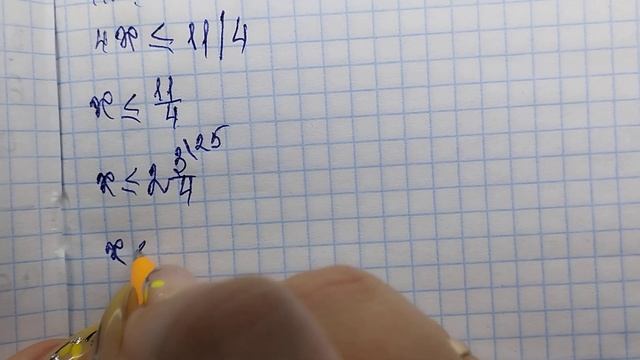 4x ≤ 11 | 4
x ≤ 11/4
x ≤ 2 3\25/4
x